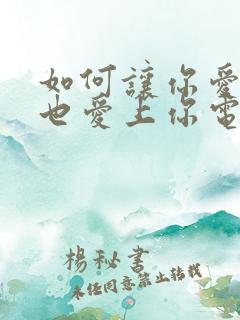 如何讓你愛
也愛上你電
楊秘書
未經同意禁止轉載